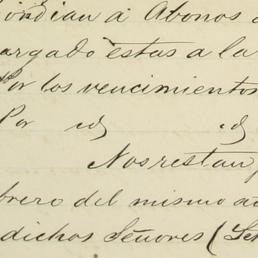 pondian á Abonos
argado estas a la
Por los vencimientos
Por id id
Nos restan
brero del mismo a
dichos Señores (